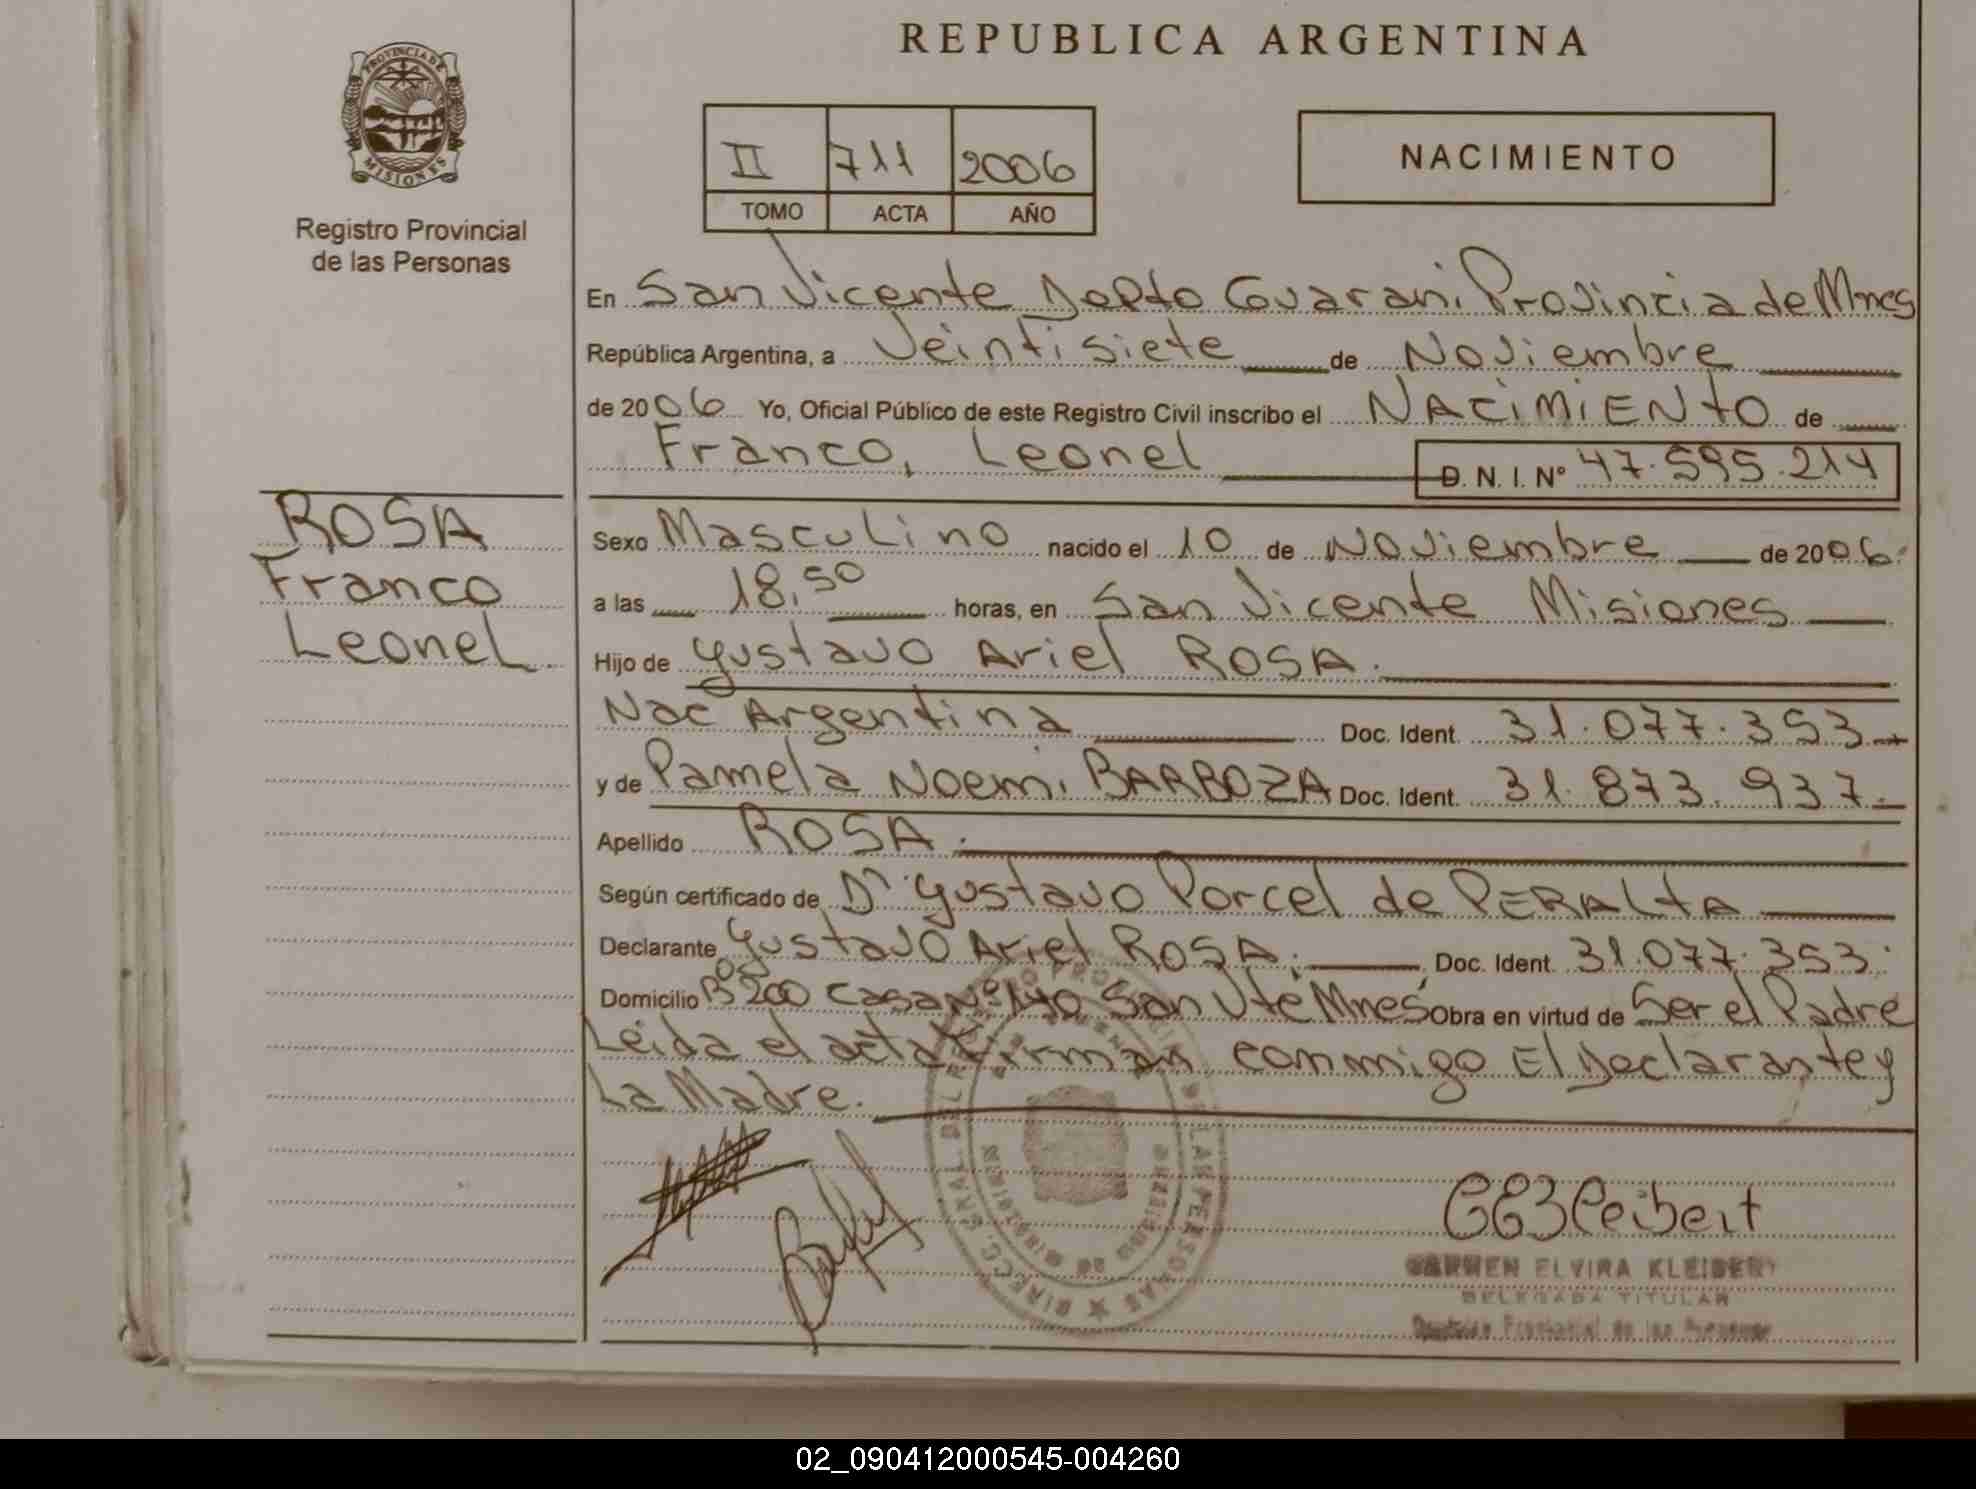 REPUBLICA ARGENTINA
PROVINCIA DE
MISIONES
Registro Provincial
de las Personas
II 711 2006
TOMO ACTA AÑO
NACIMIENTO
En San Vicente Depto Guarani Provincia de Mnes
República Argentina, a Veintisiete de Noviembre
de 2006 Yo, Oficial Público de este Registro Civil inscribo el NACIMIENTO de
Franco, Leonel D. N. I. Nº 47.595.214
ROSA
Franco
Leonel
Sexo Masculino nacido el 10 de Noviembre de 2006
a las 18,50 horas, en San Vicente Misiones
Hijo de Gustavo Ariel ROSA.
Nac Argentina Doc. Ident. 31.077.353
y de Pamela Noemi BARBOZA Doc. Ident. 31.873.937
Apellido ROSA.
Según certificado de Dr Gustavo Porcel de PERALTA
Declarante Gustavo Ariel ROSA, Doc. Ident. 31.077.353
Domicilio Bº 200 Casa Nº 140 San Vte Mnes Obra en virtud de Ser el Padre
Leida el acta firman conmigo El Declarante y
La Madre.
CARMEN ELVIRA KLEIBERT
DELEGADA TITULAR
02_090412000545-004260